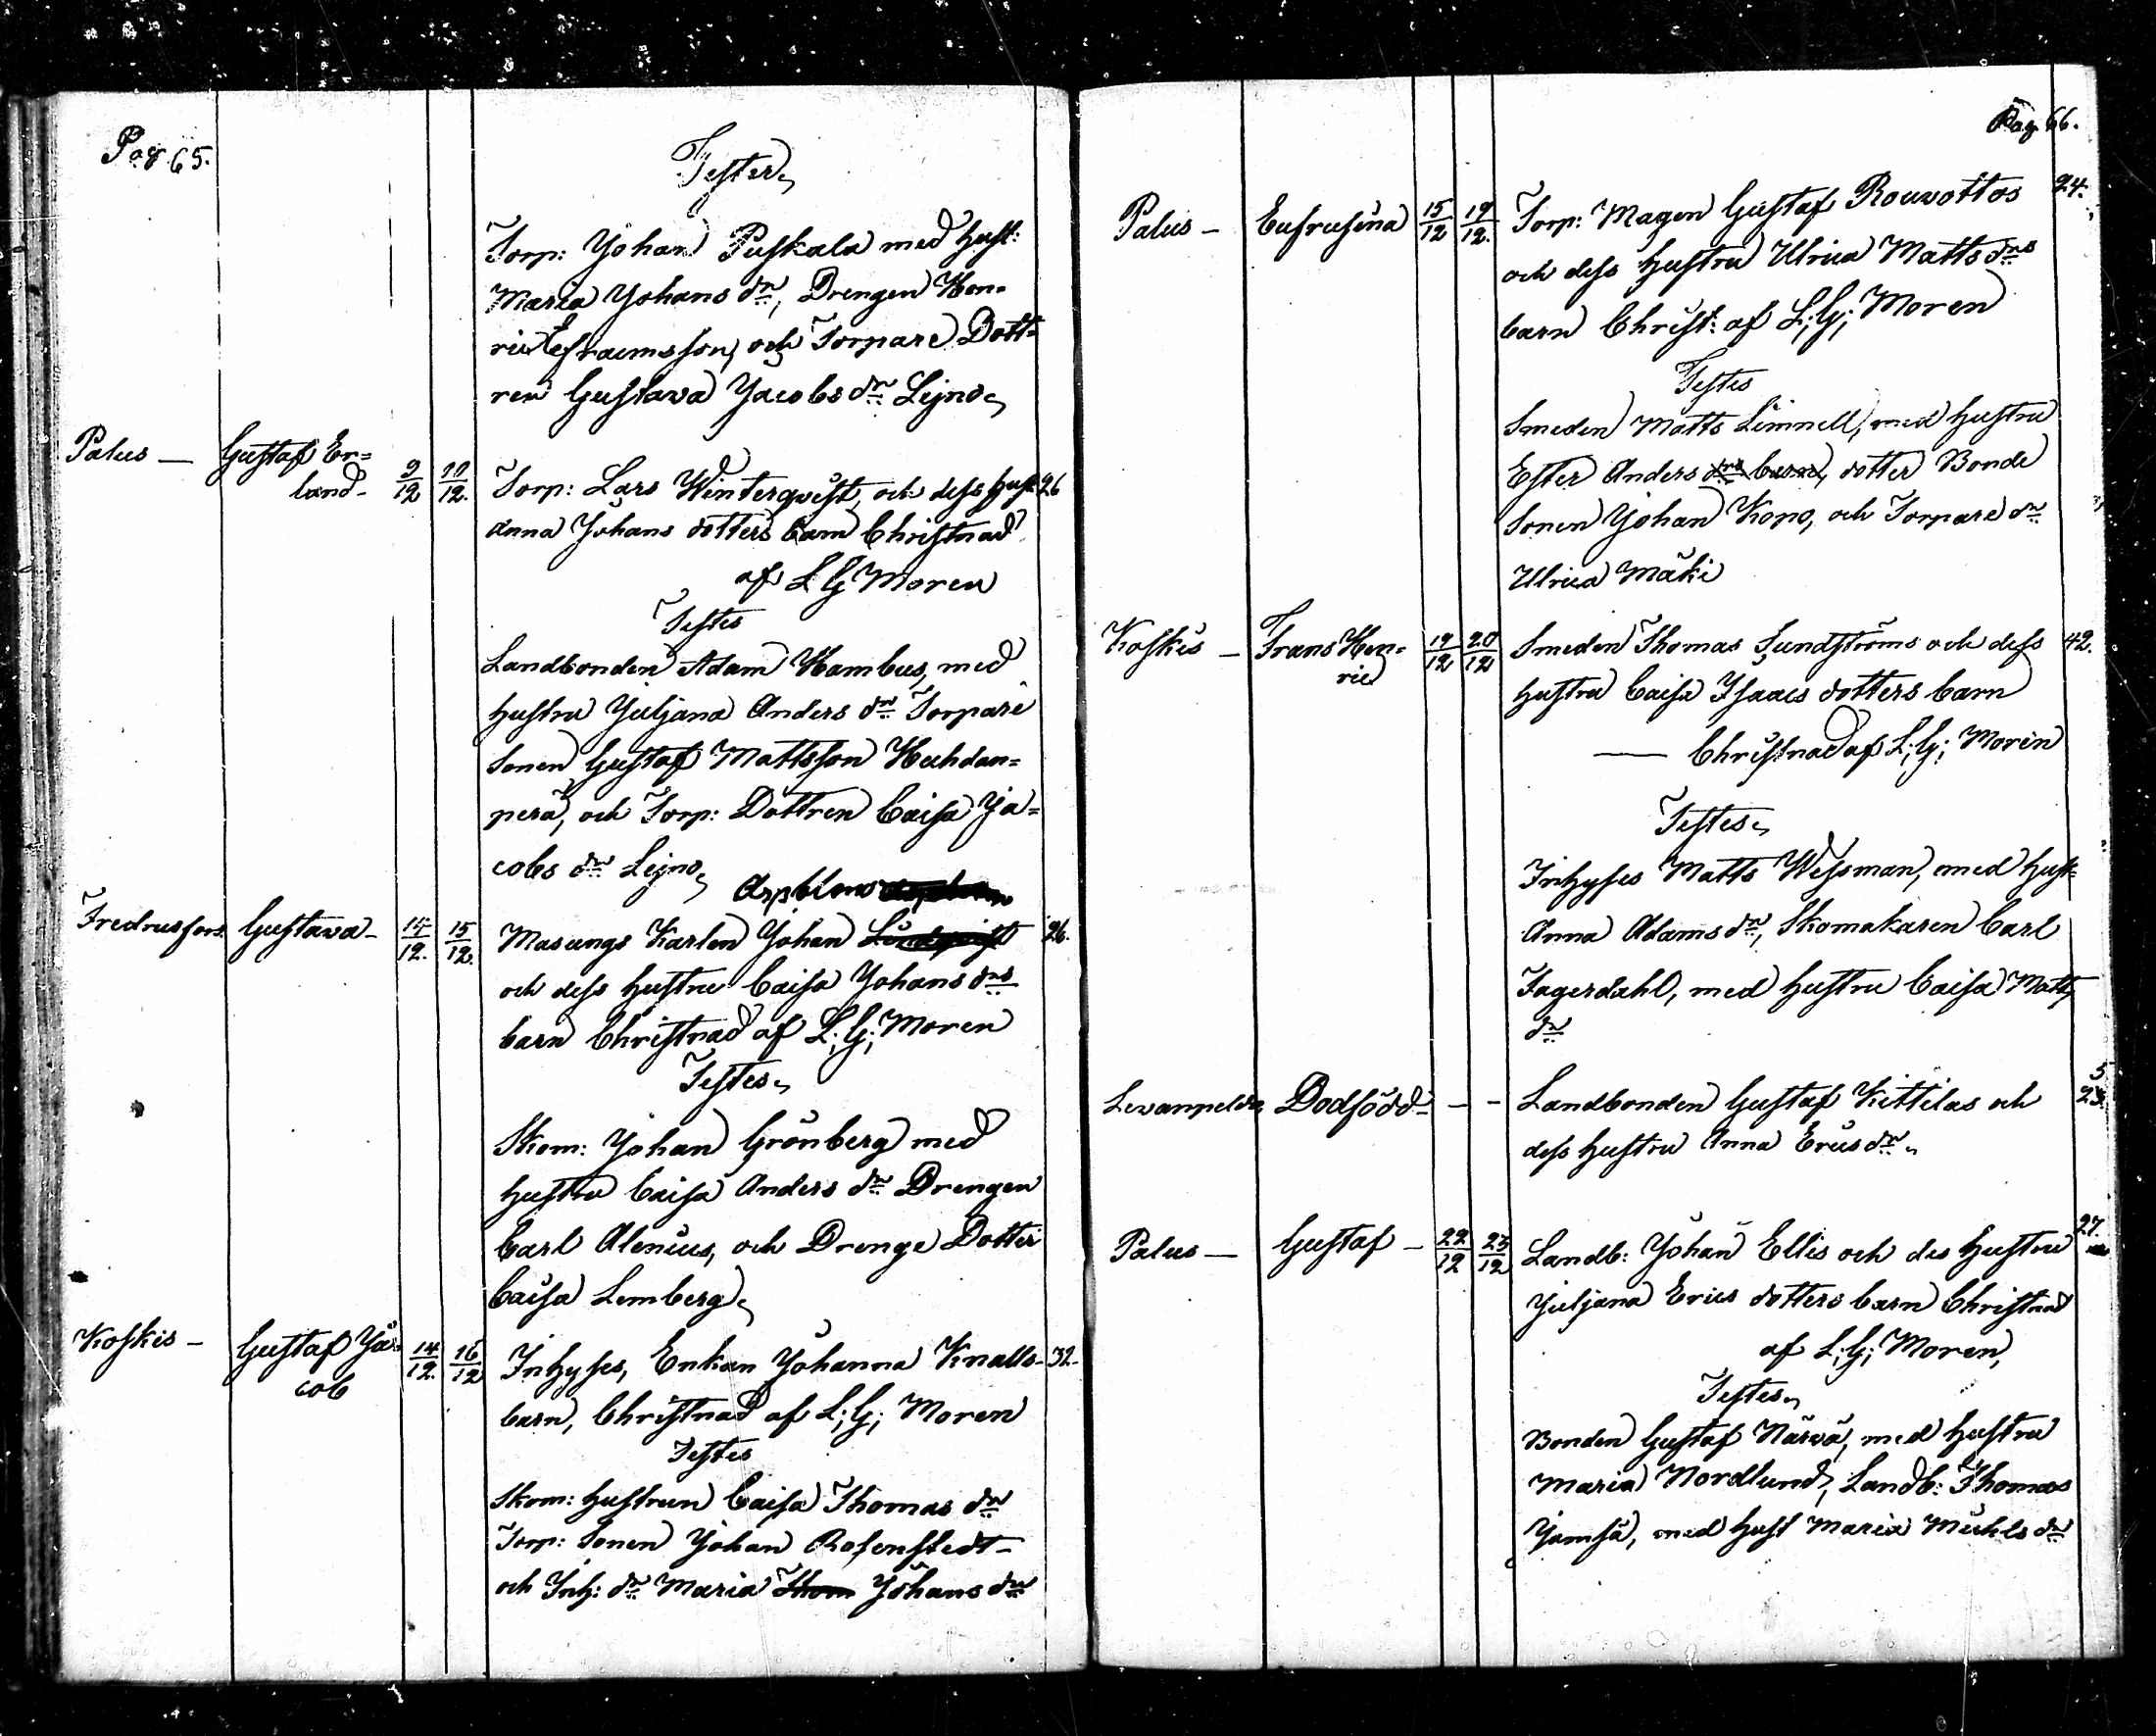 Pag. 65.
Testes,
Torp: Johan Puskala med Hust:
Maria Johans dr, Drengen Hen=
ric Efraimsson, och Torpare Dott=
ren Gustava Jacobs dr Lejno,
Palus — Gustaf Er=
land - 9/12 10/12. Torp: Lars Winterqvist, och dess Hust: 26
Anna Johans dotters barn Christnad
af L G Moren
Testes
Landbonden Adam Hambus, med
Hustru Juljana Anders dr Torpare
Sonen Gustaf Mattsson Huhdan=
perä, och Torp: Dottren Caisa Ja=
cobs dr Lejno,
Aspblons
Fredricsfors Gustava - 14/12. 15/12. Masungs Karlen Johan Lindqvist 26.
och dess Hustru Caisa Johans drs
barn Christnad af L; G; Moren
Testes,
Skom: Johan Grönberg med
Hustru Caisa Anders dr Drengen
Carl Alenius, och Drenge Dotter
Caisa Lemberg,
Koskis - Gustaf Ja=
cob 14/12. 16/12 Inhyses, Enkan Johanna Knalls- 32-
barn, Christnad af L; G; Moren
Testes
Skom: Hustrun Caisa Thomas dr
Torp: Sonen Johan Rosenstedt -
och Inh: dr Maria Thom Johans dr
Pag. 66.
Palus - Eufrusina 15/12 19/12. Torp: Magen Gustaf Rouvottos 24.
och dess Hustru Ulrica Matts drs
barn Christ: af L; G; Moren
Testes
Smeden Matts Limnell, med Hustru
Ester Anders drs barn, dotter Bonde
Sonen Johan Kopo, och Torpare dr
Ulrica Mäki
Koskis - Frans Hen=
ric 19/12 20/12 Smeden Thomas Sundströms och dess 42.
Hustru Caisa Isaacs dotters barn
— Christnad af L; G; Moren
Testes,
Inhyses Matts Wessman, med Hust=
Anna Adams dr, Skomakaren Carl
Fagerdahl, med Hustru Caisa Matts
dr
Dödfödd - - - Landbonden Gustaf Kittilas och 5 23.
dess Hustru Anna Erics dr,
Palus — Gustaf - 22/12 23/12 Landb: Johan Ellis och des Hustru 27.
Juljana Erics dotters barn Christnad
af L; G; Moren,
Testes,
Bonden Gustaf Närvä, med Hustru
Maria Nordlund, Landb: Thomas
Jämsä, med Hust Maria Michls dr